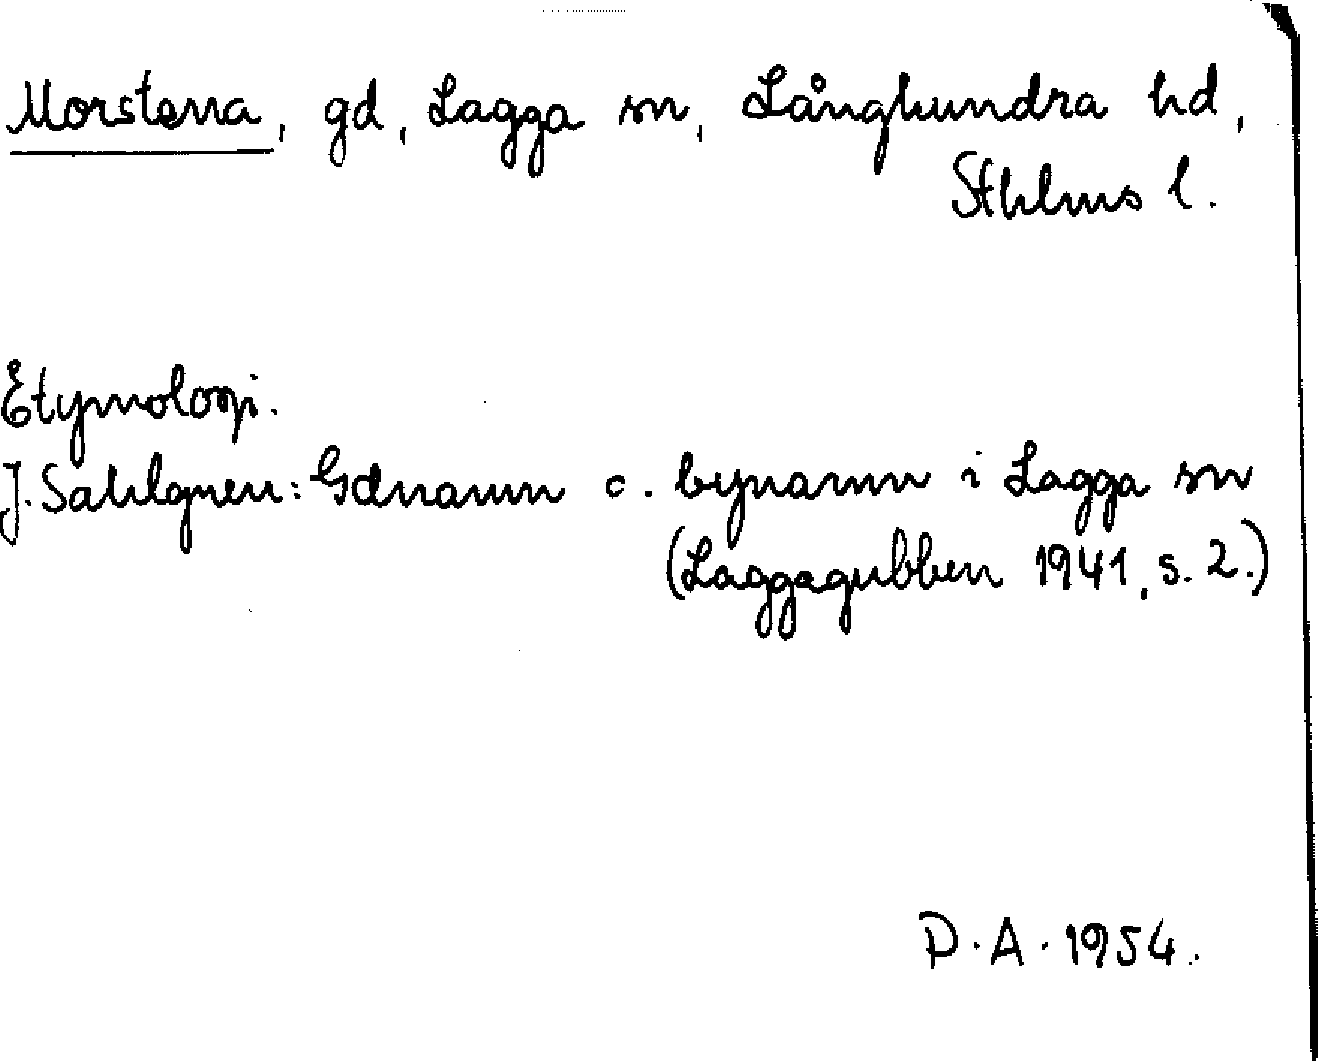 Morstana, gd, Lagga sn, Långhundra hd,
Sthlms l.
Etymologi.
J. Sahlgren: Gdnamn o. bynamn i Lagga sn
(Laggagubben 1941, s. 2.)
D. A. 1954.